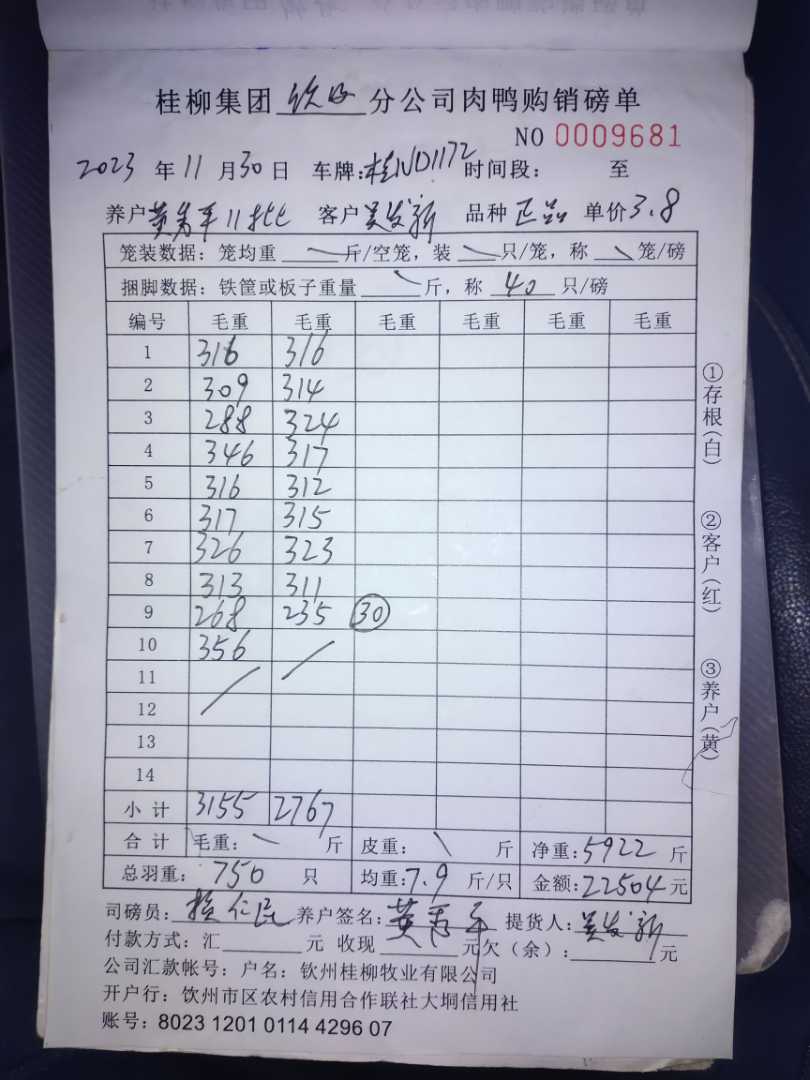 桂柳集团 钦州 分公司肉鸭购销磅单
NO 0009681
2023 年 11 月 30 日 车牌:桂ND1172 时间段: 至
养户 黄秀平11批 客户 吴发新 品种 正品 单价 3.8
笼装数据:笼均重 斤/空笼,装 只/笼,称 笼/磅
捆脚数据:铁筐或板子重量 斤,称 40 只/磅
编号 毛重 毛重 毛重 毛重 毛重 毛重
1 316 316
2 309 314
3 288 324
4 346 317
5 316 312
6 317 315
7 326 323
8 313 311
9 268 235 30
10 356
11
12
13
14
小 计 3155 2767
合 计 毛重: 斤 皮重: 斤 净重:5922 斤
总羽重: 750 只 均重:7.9 斤/只 金额:22504 元
司磅员: 养户签名:黄秀平 提货人:吴发新
付款方式:汇 元 收现 元欠(余): 元
公司汇款帐号:户名:钦州桂柳牧业有限公司
开户行:钦州市区农村信用合作联社大垌信用社
账号:8023 1201 0114 4296 07
①存根(白)
②客户(红)
③养户(黄)